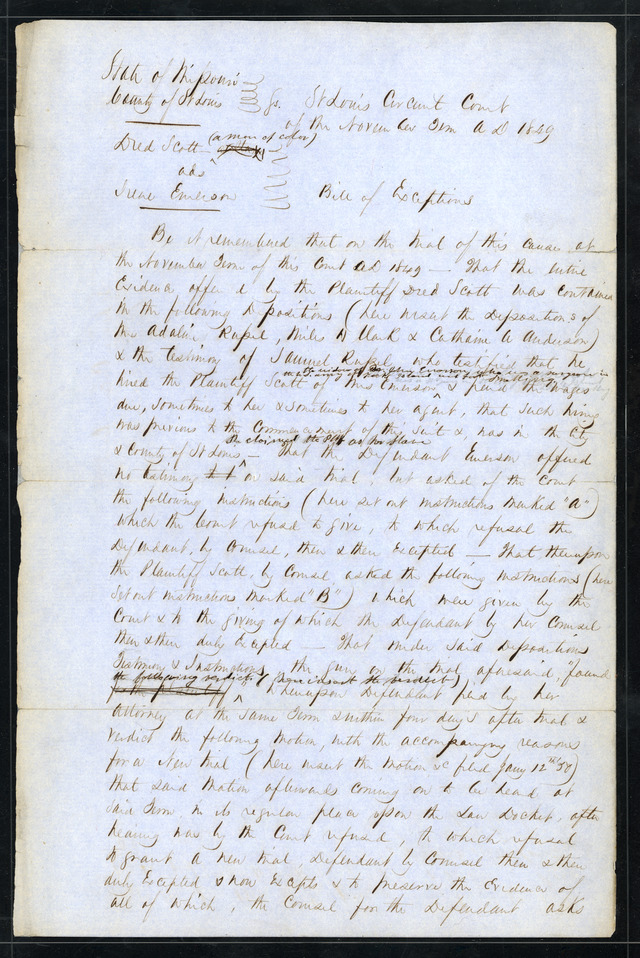 State of Missouri
County of St Louis } Ss. St Louis Circuit Court
of the November Term A D 1849
(a man of color)
Dred Scott
ads
Irene Emerson Bill of Exceptions
Be it remembered that on the trial of this cause at
the November Term of this Court AD 1849 — That the entire
Evidence offered by the Plaintiff Dred Scott was contained
in the following Depositions (here insert the Depositions of
Mrs Adaline Russel, Miles H Clark & Catharine A Anderson)
& the testimony of Samuel Russel, who testified that he
hired the Plaintiff Scott of Mrs Emerson & paid the wages
due, sometimes to her & sometimes to her agent, that such hiring
was previous to the Commencement of this Suit & was in the City
She claimed the Plff as her slave
& County of St Louis — That the Defendant Emerson offered
no testimony on said trial, but asked of the Court
the following instructions (here set out instructions marked "A")
which the Court refused to give, to which refusal the
Defendant, by Counsel, then & there Excepted — That thereupon
the Plaintiff Scott, by Counsel asked the following instructions (here
set out instructions marked "B") which were given by the
Court & to the giving of which the Defendant by her Counsel
then & there duly Excepted — That under said Depositions
Testimony & Instructions, the jury on the trial aforesaid, "found
the following verdict" (here insert the verdict)
Whereupon Defendant filed by her
Attorney at the same Term & within four days after trial &
verdict the following Motion, with the accompanying reasons
for a New trial (here insert the Motion &c filed Jany 12th 50)
that said Motion afterwards coming on to be heard at
said Term, in its regular place upon the Law Docket, after
hearing was by the Court refused, to which refusal
to grant a new trial, Defendant by Counsel then & there
duly Excepted & now Excepts & to preserve the Evidence of
all of which, the Counsel for the Defendant asks